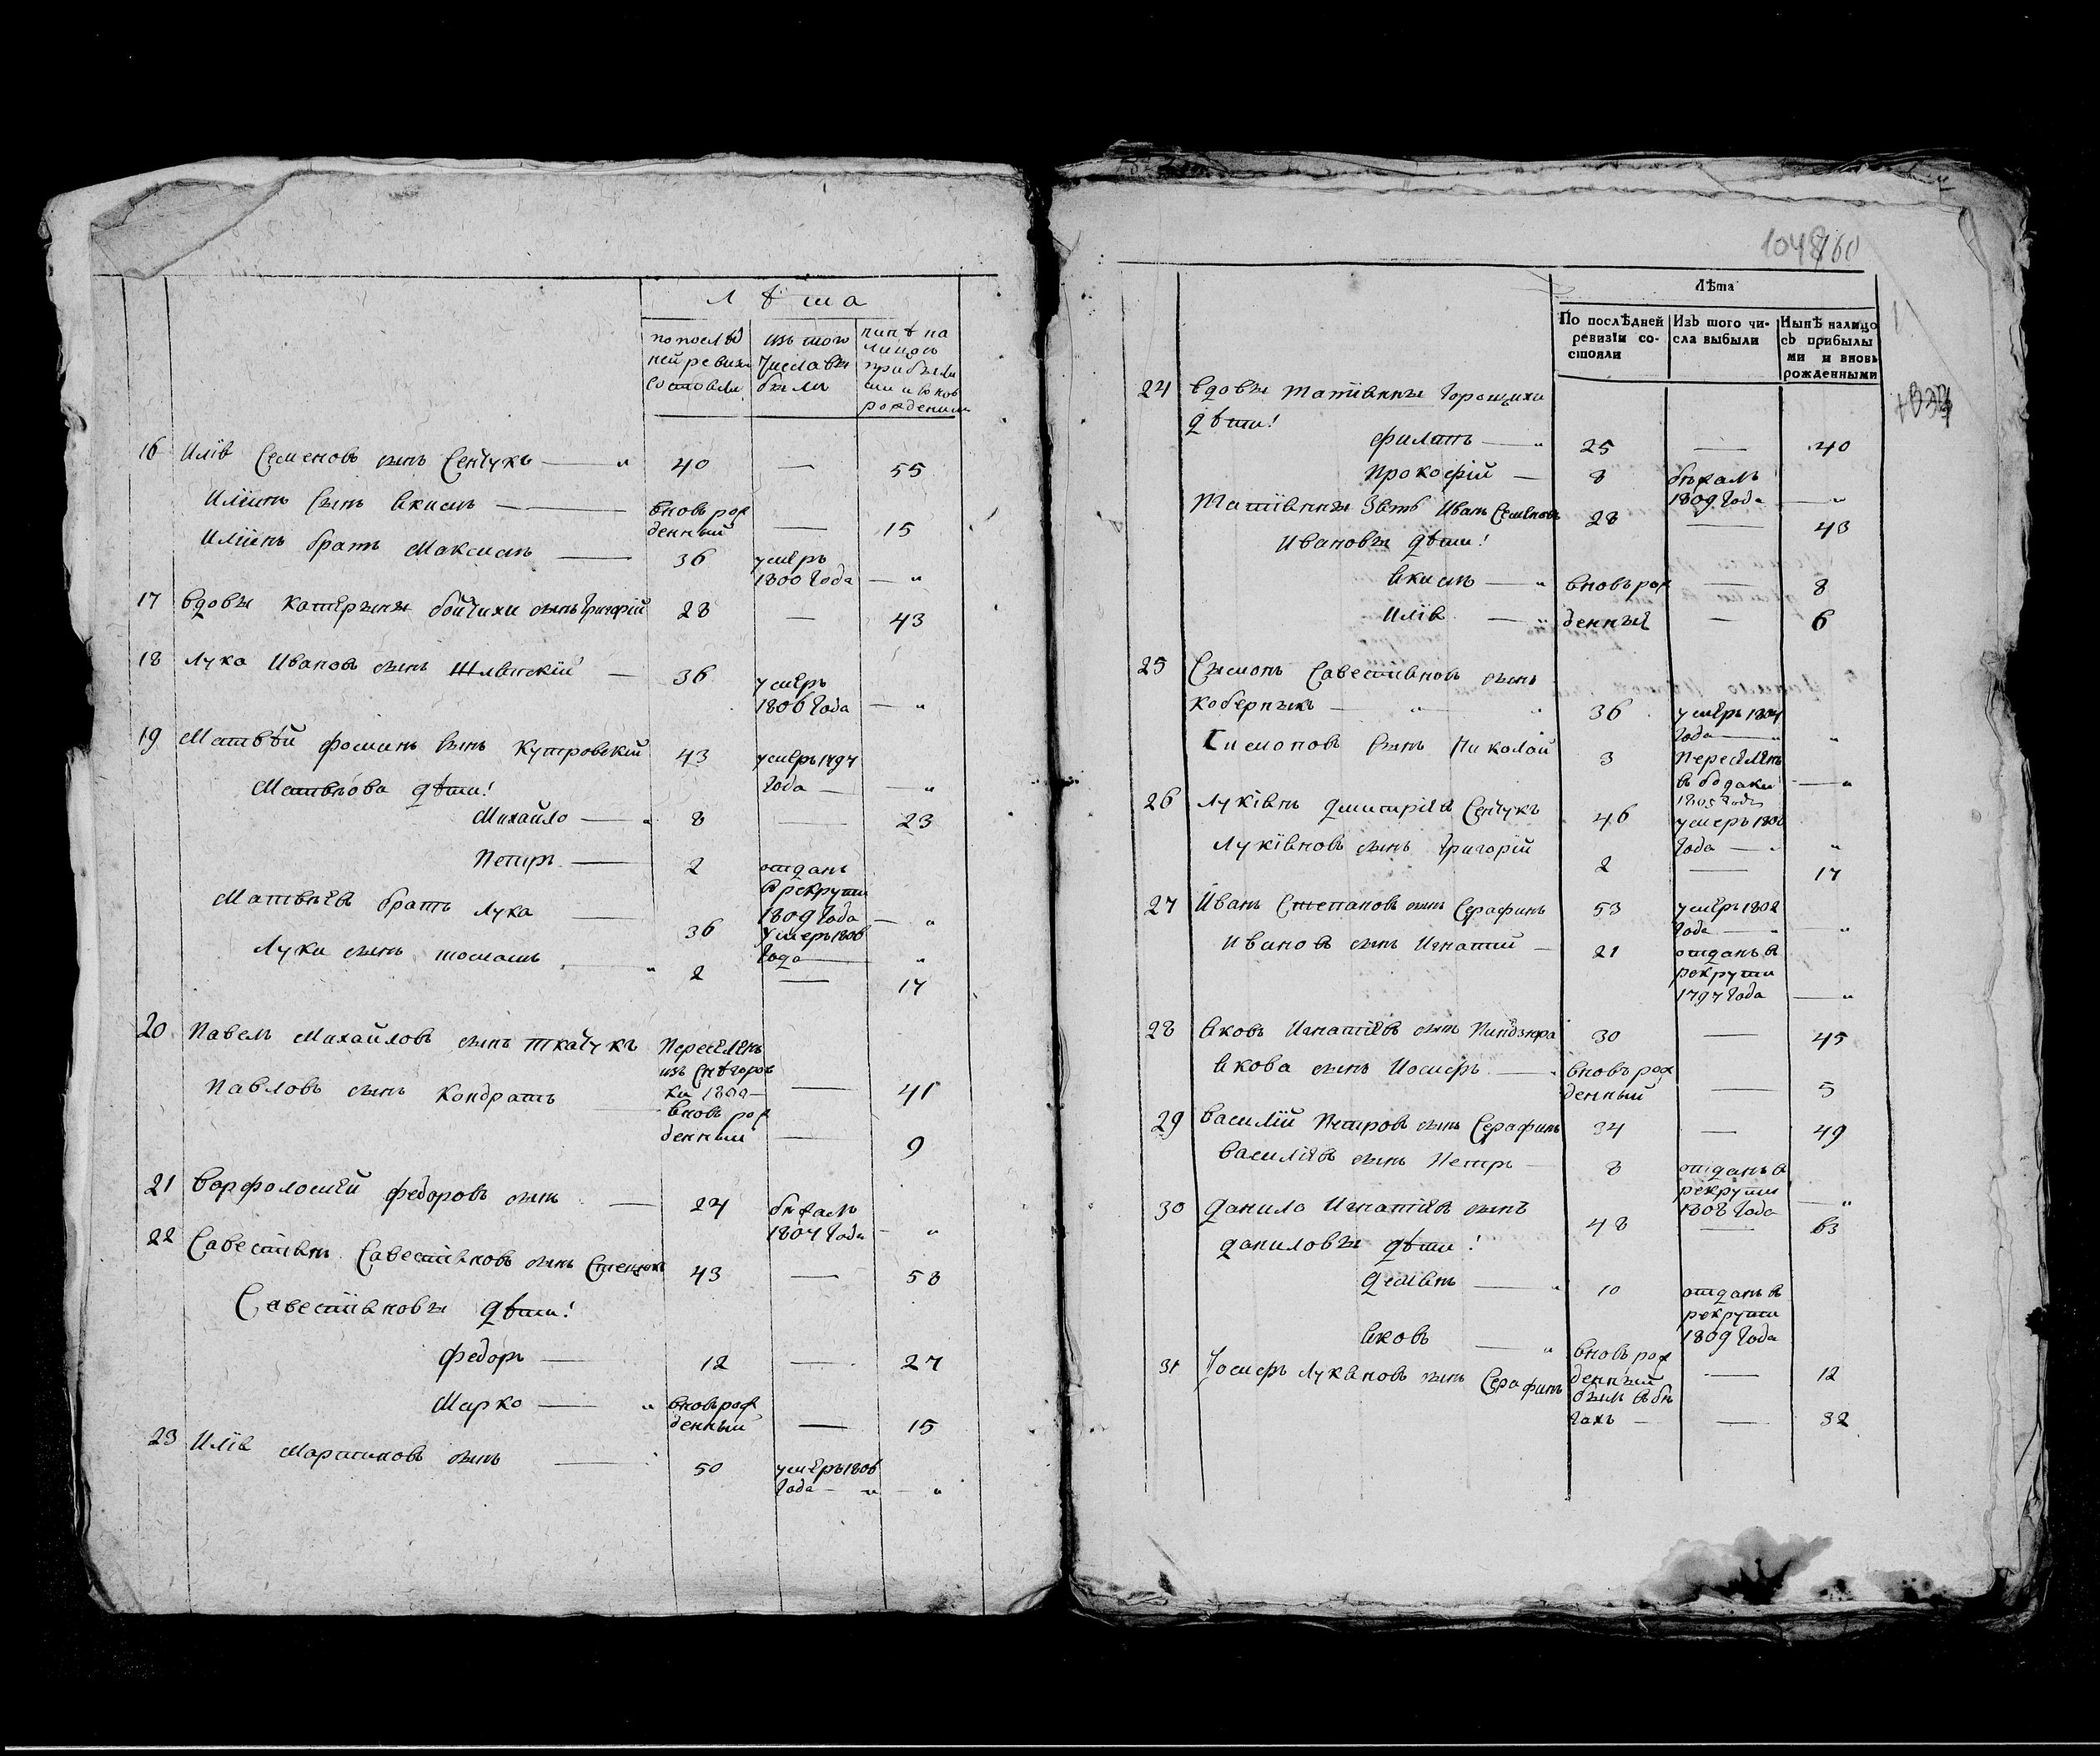 Лѣта
по послѣд
ней ревизіи
состояли
изъ того
числа вы
были
нинѣ на
лицо съ
прибылы
ми и вновь
рожденными
16 Илія Семеновъ сынъ Сенчукъ — " 40 — 55
Иліинъ сынъ Якимъ — вновь рож
денный — 15
Иліинъ братъ Максимъ — 36 умеръ
1800 года — "
17 вдовы Катерыны Бойчихи сынъ 28 — 43
18 Лука Ивановъ сынъ — 36 умеръ
1806 года — "
19 Матвѣй Фоминъ сынъ Кутровскій 43 умеръ 1797
года — — "
Матвѣова дѣти!
Михайло — " 8 — 23
Петръ — 2 отданъ
в рекруты
1809 года — "
Матвѣевъ братъ Лука — 36 умеръ 1806
года — "
Луки сынъ Томашъ — " 2 — 17
20 Павелъ Михайловъ сынъ Ткачукъ Переселенъ
изъ Снѣгоров
ки — 41
Павловъ сынъ Кондратъ вновь рож
денный — 9
21 Варфоломей Федоровъ сынъ — 24 бѣжалъ
1804 года — "
22 Савестіянъ Савестіяновъ сынъ 43 — 58
Савестіяновы дѣти!
Федоръ — 12 — 27
Марко — " вновь рож
денный — 15
23 Илія Мартиновъ сынъ — 50 умеръ 1806
года — " — "
1048
160
Лѣта
По послѣдней
ревизіи со-
стояли
Изъ того чи-
сла выбыли
Нынѣ налицо
съ прибылы
ми и вновь
рожденными
24 вдовы Татіянны Горощихи
дѣти!
Филатъ — " 25 — 40
Прокофій — 8 бѣжалъ
1809 года — "
Татіянны зять Иванъ Семеновъ 28 — 43
Ивановы дѣти!
Якимъ — " вновь рож — 8
Илія — " денныя — 6
25 Сымонъ Савестіяновъ сынъ
Коберныкъ — " " 36 умеръ 1804
года — " "
Симоновъ сынъ Николай 3 Переселенъ
в Бодаки — "
1805 года
26 Лукіянъ Дмитріевъ Сенчукъ 46 умеръ 1800
года — " "
Лукіяновъ сынъ Григорій 2 — 17
27 Иванъ Степановъ сынъ Серафинъ 53 умеръ 1802
года — " — "
Ивановъ сынъ Игнатий — 21 отданъ в
рекруты
1797 года — "
28 Яковъ Игнатіевъ сынъ Пиндзюра 30 — 45
Якова сынъ Иосифъ — " вновь рож
денный — 5
29 Василій Петровъ сынъ Серафинъ 34 — 49
Василіевъ сынъ Петръ — 8 отданъ в
рекруты
1808 года — "
30 Данило Игнатіевъ сынъ 48 — 63
Даниловы дѣти!
Демянъ — " 10 отданъ в
рекруты
1809 года
Яковъ — " вновь рож
денный — 12
31 Иосифъ Лукяновъ сынъ Серафинъ былъ в бѣ
гахъ — — 32